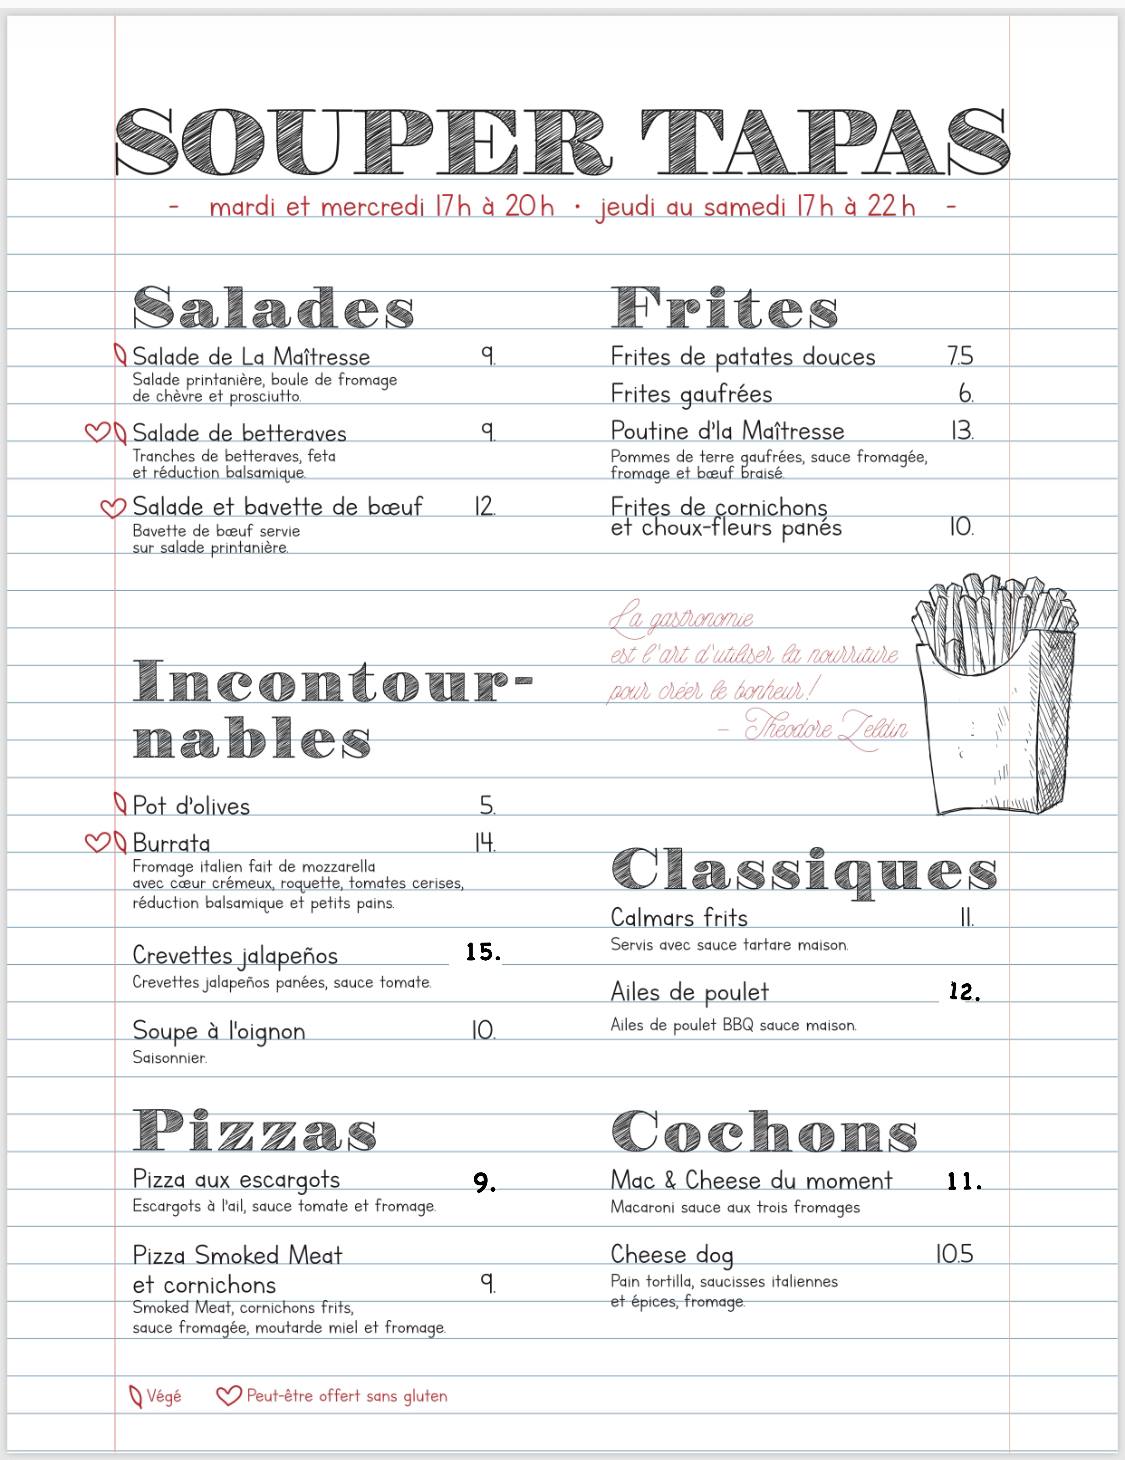 SOUPER TAPAS
- mardi et mercredi 17h à 20h · jeudi au samedi 17h à 22h -
Salades
Salade de La Maîtresse 9.
Salade printanière, boule de fromage
de chèvre et prosciutto.
Salade de betteraves 9.
Tranches de betteraves, feta
et réduction balsamique.
Salade et bavette de bœuf 12.
Bavette de bœuf servie
sur salade printanière.
Incontour-
nables
Pot d'olives 5.
Burrata 14.
Fromage italien fait de mozzarella
avec cœur crémeux, roquette, tomates cerises,
réduction balsamique et petits pains.
Crevettes jalapeños 15.
Crevettes jalapeños panées, sauce tomate.
Soupe à l'oignon 10.
Saisonnier.
Pizzas
Pizza aux escargots 9.
Escargots à l'ail, sauce tomate et fromage.
Pizza Smoked Meat
et cornichons 9.
Smoked Meat, cornichons frits,
sauce fromagée, moutarde miel et fromage.
Frites
Frites de patates douces 7.5
Frites gaufrées 6.
Poutine d'la Maîtresse 13.
Pommes de terre gaufrées, sauce fromagée,
fromage et bœuf braisé.
Frites de cornichons
et choux-fleurs panés 10.
La gastronomie
est l'art d'utiliser la nourriture
pour créer le bonheur!
- Theodore Zeldin
Classiques
Calmars frits 11.
Servis avec sauce tartare maison.
Ailes de poulet 12.
Ailes de poulet BBQ sauce maison.
Cochons
Mac & Cheese du moment 11.
Macaroni sauce aux trois fromages
Cheese dog 10.5
Pain tortilla, saucisses italiennes
et épices, fromage.
Végé Peut-être offert sans gluten